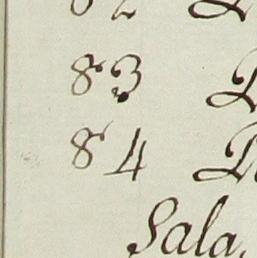 82
83
84
Sala